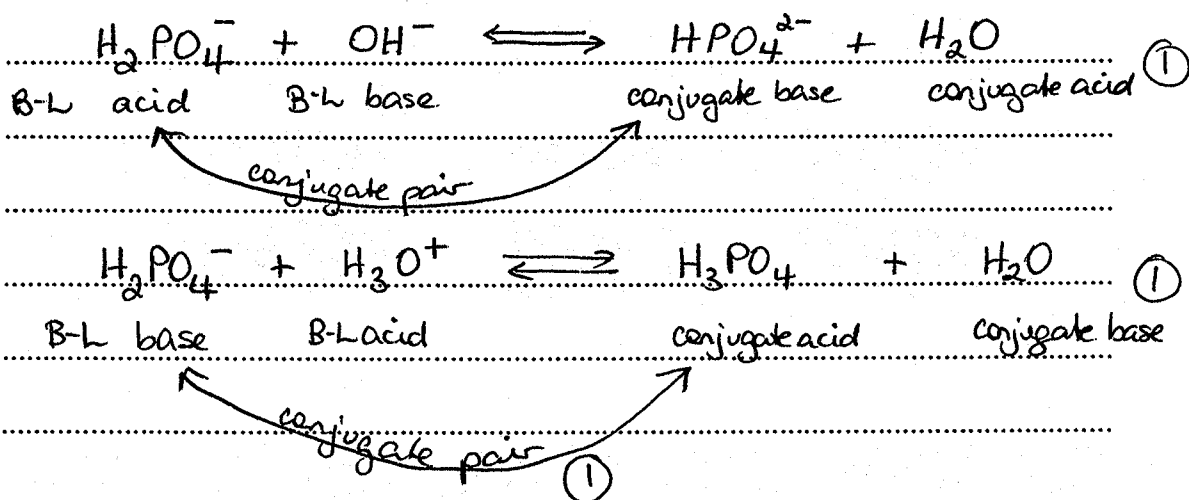 H₂PO₄⁻ + OH⁻ ⇌ HPO₄²⁻ + H₂O ①
B-L acid B-L base. conjugate base conjugate acid
conjugate pair
H₂PO₄⁻ + H₃O⁺ ⇌ H₃PO₄ + H₂O ①
B-L base B-L acid conjugate acid conjugate base
conjugate pair ①